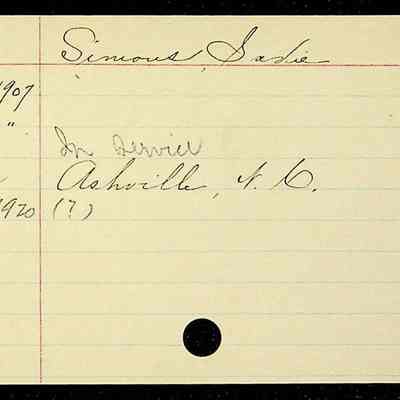 Simons, Sadie
1907
"
In Service
Ashville, N. C.
1920 (?)